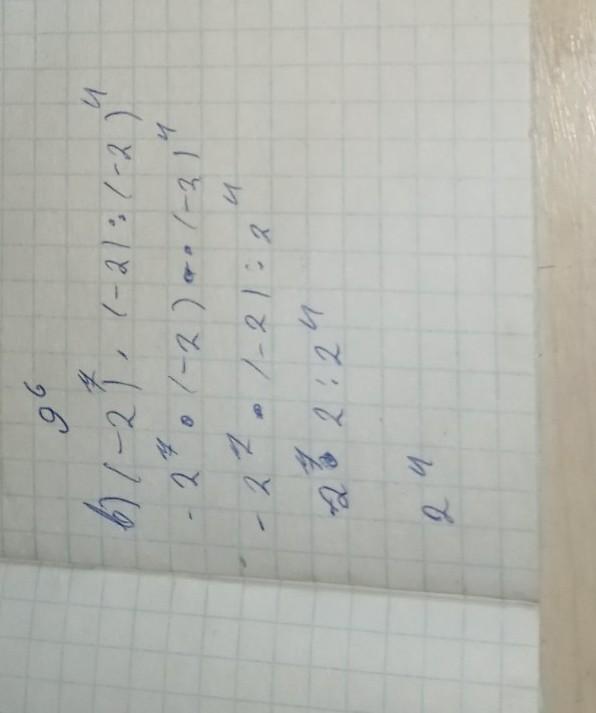 9⁶
b) (-2)⁷ · (-2) : (-2)⁴
-2⁷ · (-2) : (-2)⁴
-2⁷ · (-2) : 2⁴
2⁷ · 2 : 2⁴
2⁴